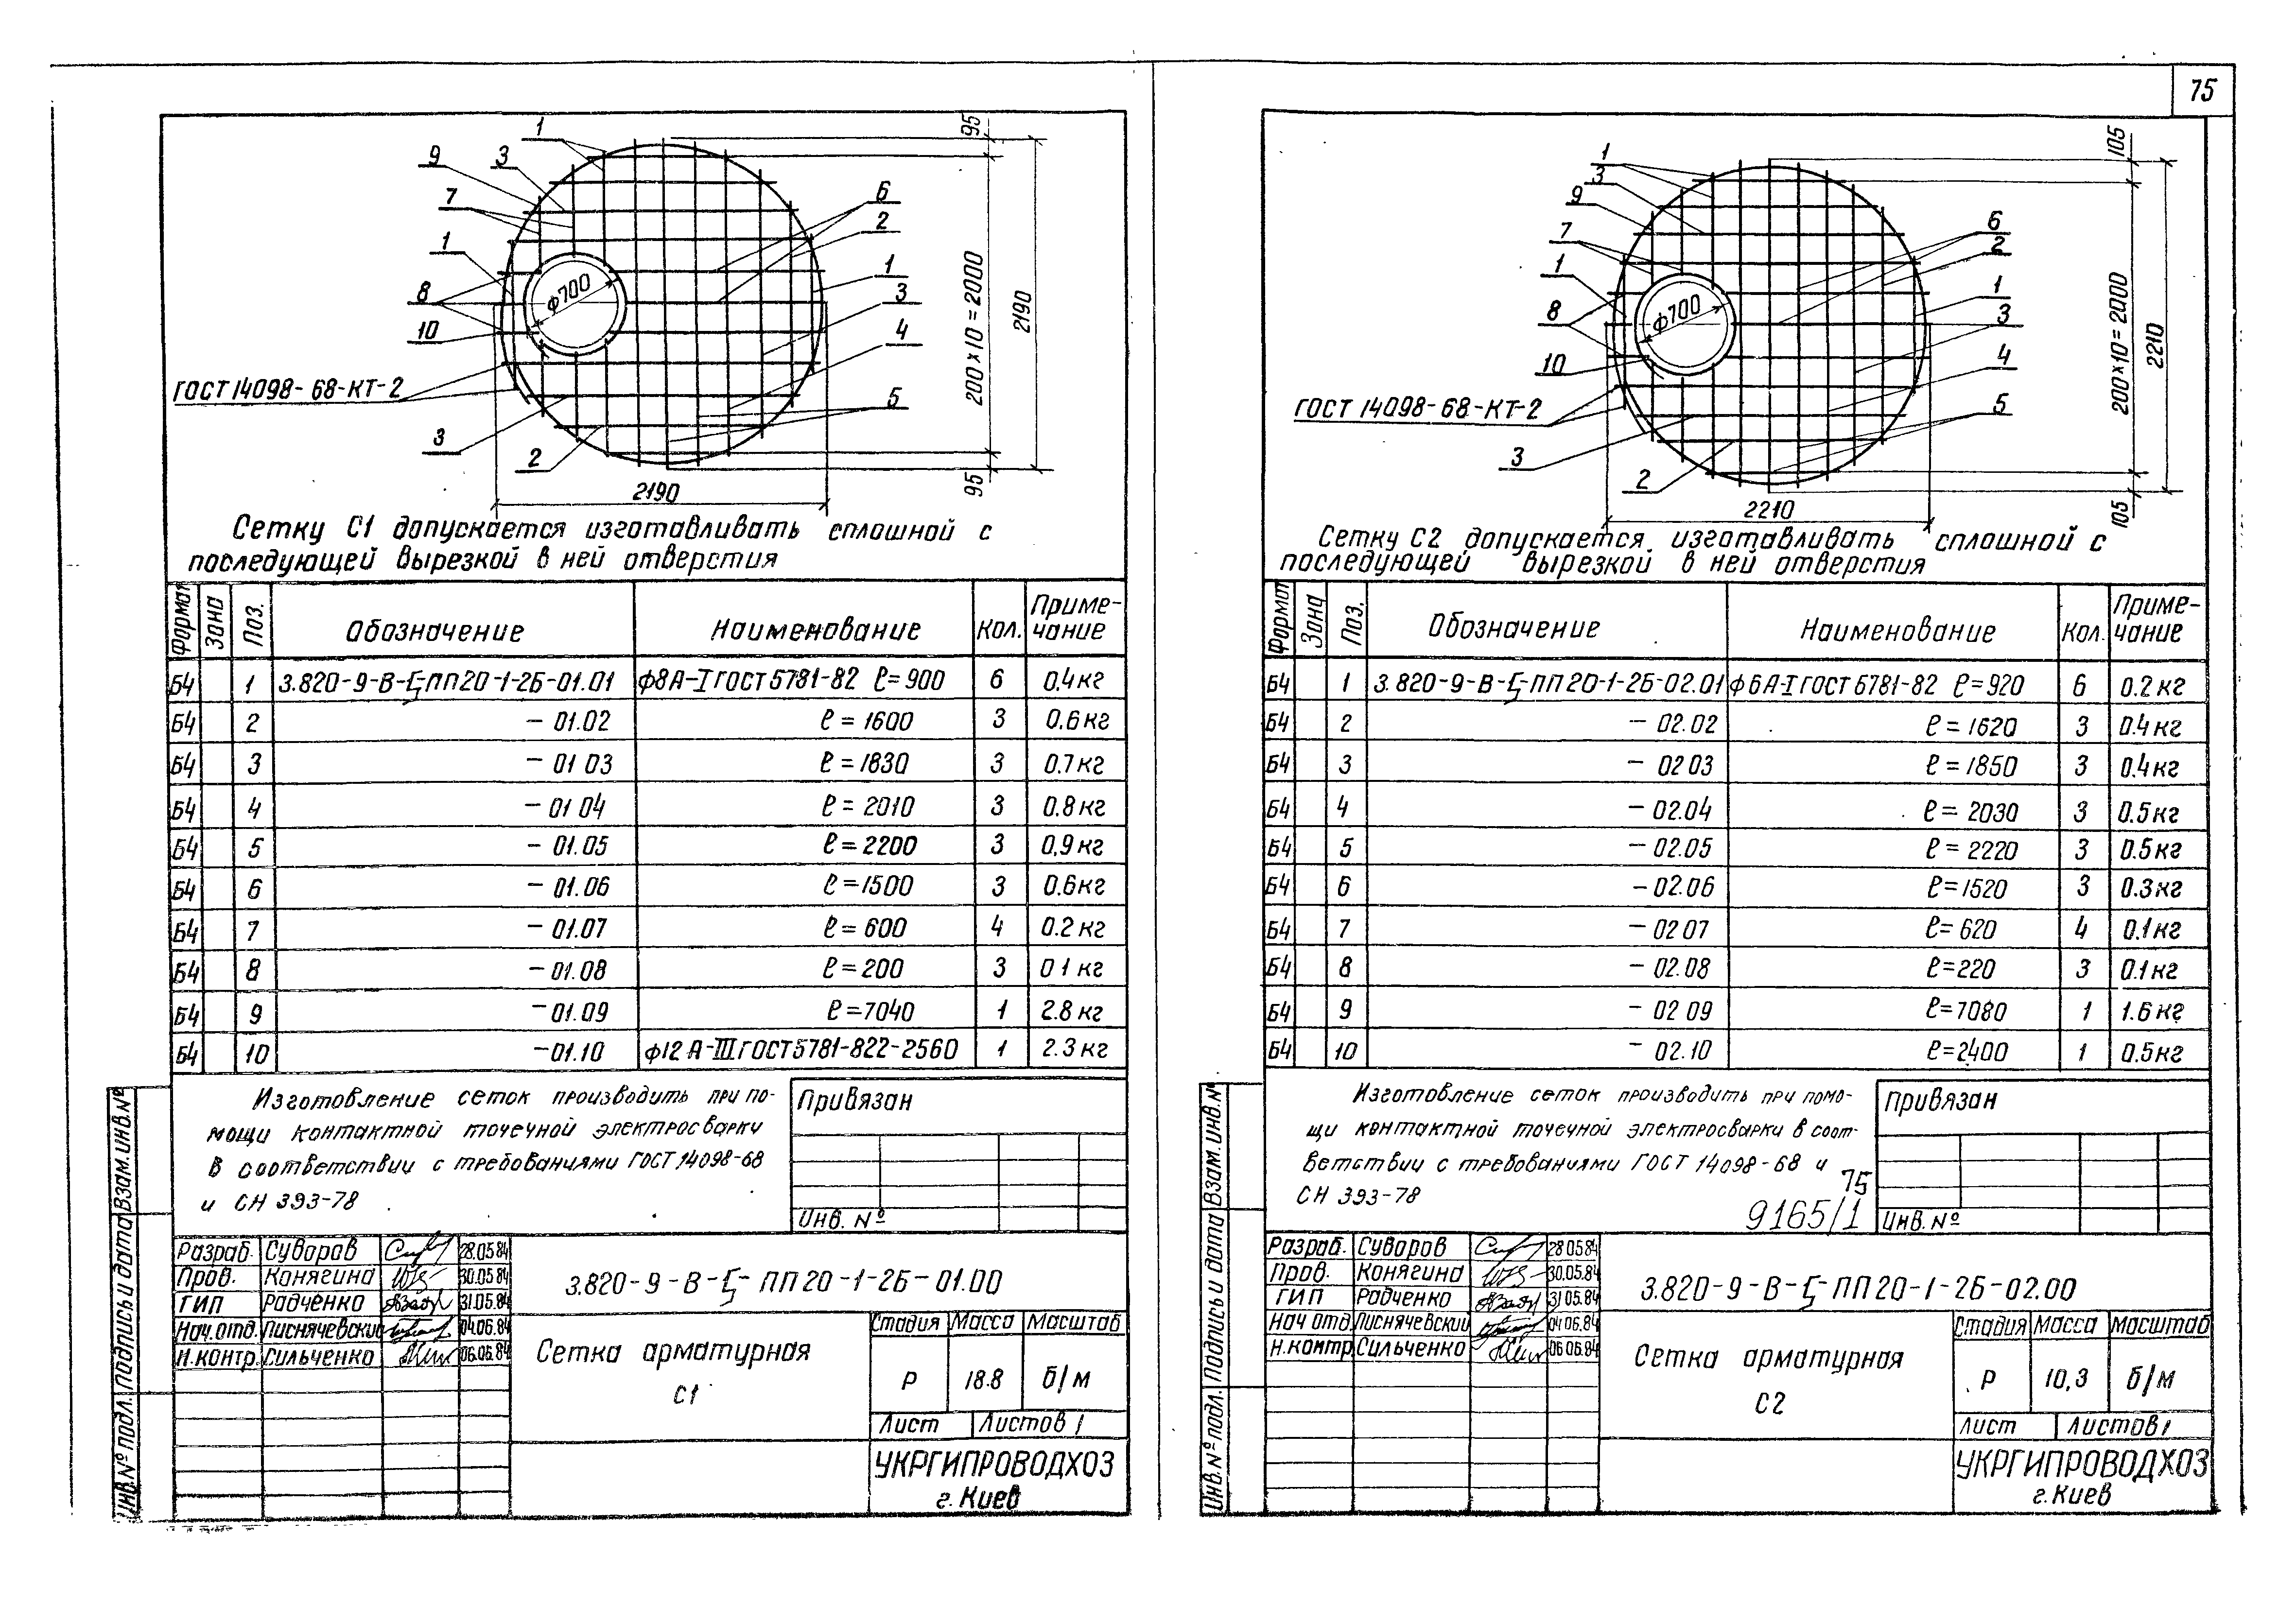 75
1
9
3
7
1
8
10
6
2
1
3
4
5
3
2
ф700
ГОСТ 14098-68-КТ-2
95
200×10=2000
2190
95
2190
Сетку С1 допускается изготавливать сплошной с
последующей вырезкой в ней отверстия
Формат Зона Поз. Обозначение Наименование Кол. Приме-
чание
Б4 1 3.820-9-В-ПП20-1-2Б-01.01 ф8А-I ГОСТ 5781-82 ℓ=900 6 0,4кг
Б4 2 -01.02 ℓ=1600 3 0.6кг
Б4 3 -01 03 ℓ=1830 3 0.7кг
Б4 4 -01 04 ℓ=2010 3 0.8кг
Б4 5 -01.05 ℓ=2200 3 0,9кг
Б4 6 -01.06 ℓ=1500 3 0.6кг
Б4 7 -01.07 ℓ=600 4 0.2кг
Б4 8 -01.08 ℓ=200 3 0 1 кг
Б4 9 -01.09 ℓ=7040 1 2.8кг
Б4 10 -01.10 ф12 А-III ГОСТ5781-822-2560 1 2.3кг
Изготовление сеток производить при по-
мощи контактной точечной электросварки
в соответствии с требованиями ГОСТ 14098-68
и СН 393-78
Привязан
Инв. №
Инв.№ подл. Подпись и дата Взам.инв.№
Разраб. Суворов 28.05.84
Пров. Конягина 30.05.84
ГИП Радченко 31.05.84
Нач.отд. Лиснячевский 04.06.84
Н.контр. Сильченко 06.06.84
3.820-9-В-ПП20-1-2Б-01.00
Сетка арматурная
С1
Стадия Масса Масштаб
Р 18.8 б/м
Лист Листов 1
УКРГИПРОВОДХОЗ
г. Киев
1
3
9
7
1
8
10
6
2
1
3
4
5
3
2
ф700
ГОСТ 14098-68-КТ-2
105
200×10=2000
2210
105
2210
Сетку С2 допускается изготавливать сплошной с
последующей вырезкой в ней отверстия
Формат Зона Поз. Обозначение Наименование Кол. Приме-
чание
Б4 1 3.820-9-В-ПП20-1-2Б-02.01 ф6А-I ГОСТ 5781-82 ℓ=920 6 0.2кг
Б4 2 -02.02 ℓ=1620 3 0.4кг
Б4 3 -02 03 ℓ=1850 3 0.4кг
Б4 4 -02.04 ℓ=2030 3 0.5кг
Б4 5 -02.05 ℓ=2220 3 0.5кг
Б4 6 -02.06 ℓ=1520 3 0.3кг
Б4 7 -02 07 ℓ=620 4 0.1кг
Б4 8 -02.08 ℓ=220 3 0.1кг
Б4 9 -02 09 ℓ=7080 1 1.6кг
Б4 10 -02.10 ℓ=2400 1 0.5кг
Изготовление сеток производить при помо-
щи контактной точечной электросварки в соот-
ветствии с требованиями ГОСТ 14098-68 и
СН 393-78
75
9165/1
Привязан
Инв. №
Инв.№ подл. Подпись и дата Взам.инв.№
Разраб. Суворов 28 05 84
Пров. Конягина 30.05.84
ГИП Радченко 31 05.84
Нач отд Лиснячевский 04 06.84
Н.контр Сильченко 06 06.84
3.820-9-В-ПП20-1-2Б-02.00
Сетка арматурная
С2
Стадия Масса Масштаб
Р 10,3 б/м
Лист Листов 1
УКРГИПРОВОДХОЗ
г. Киев